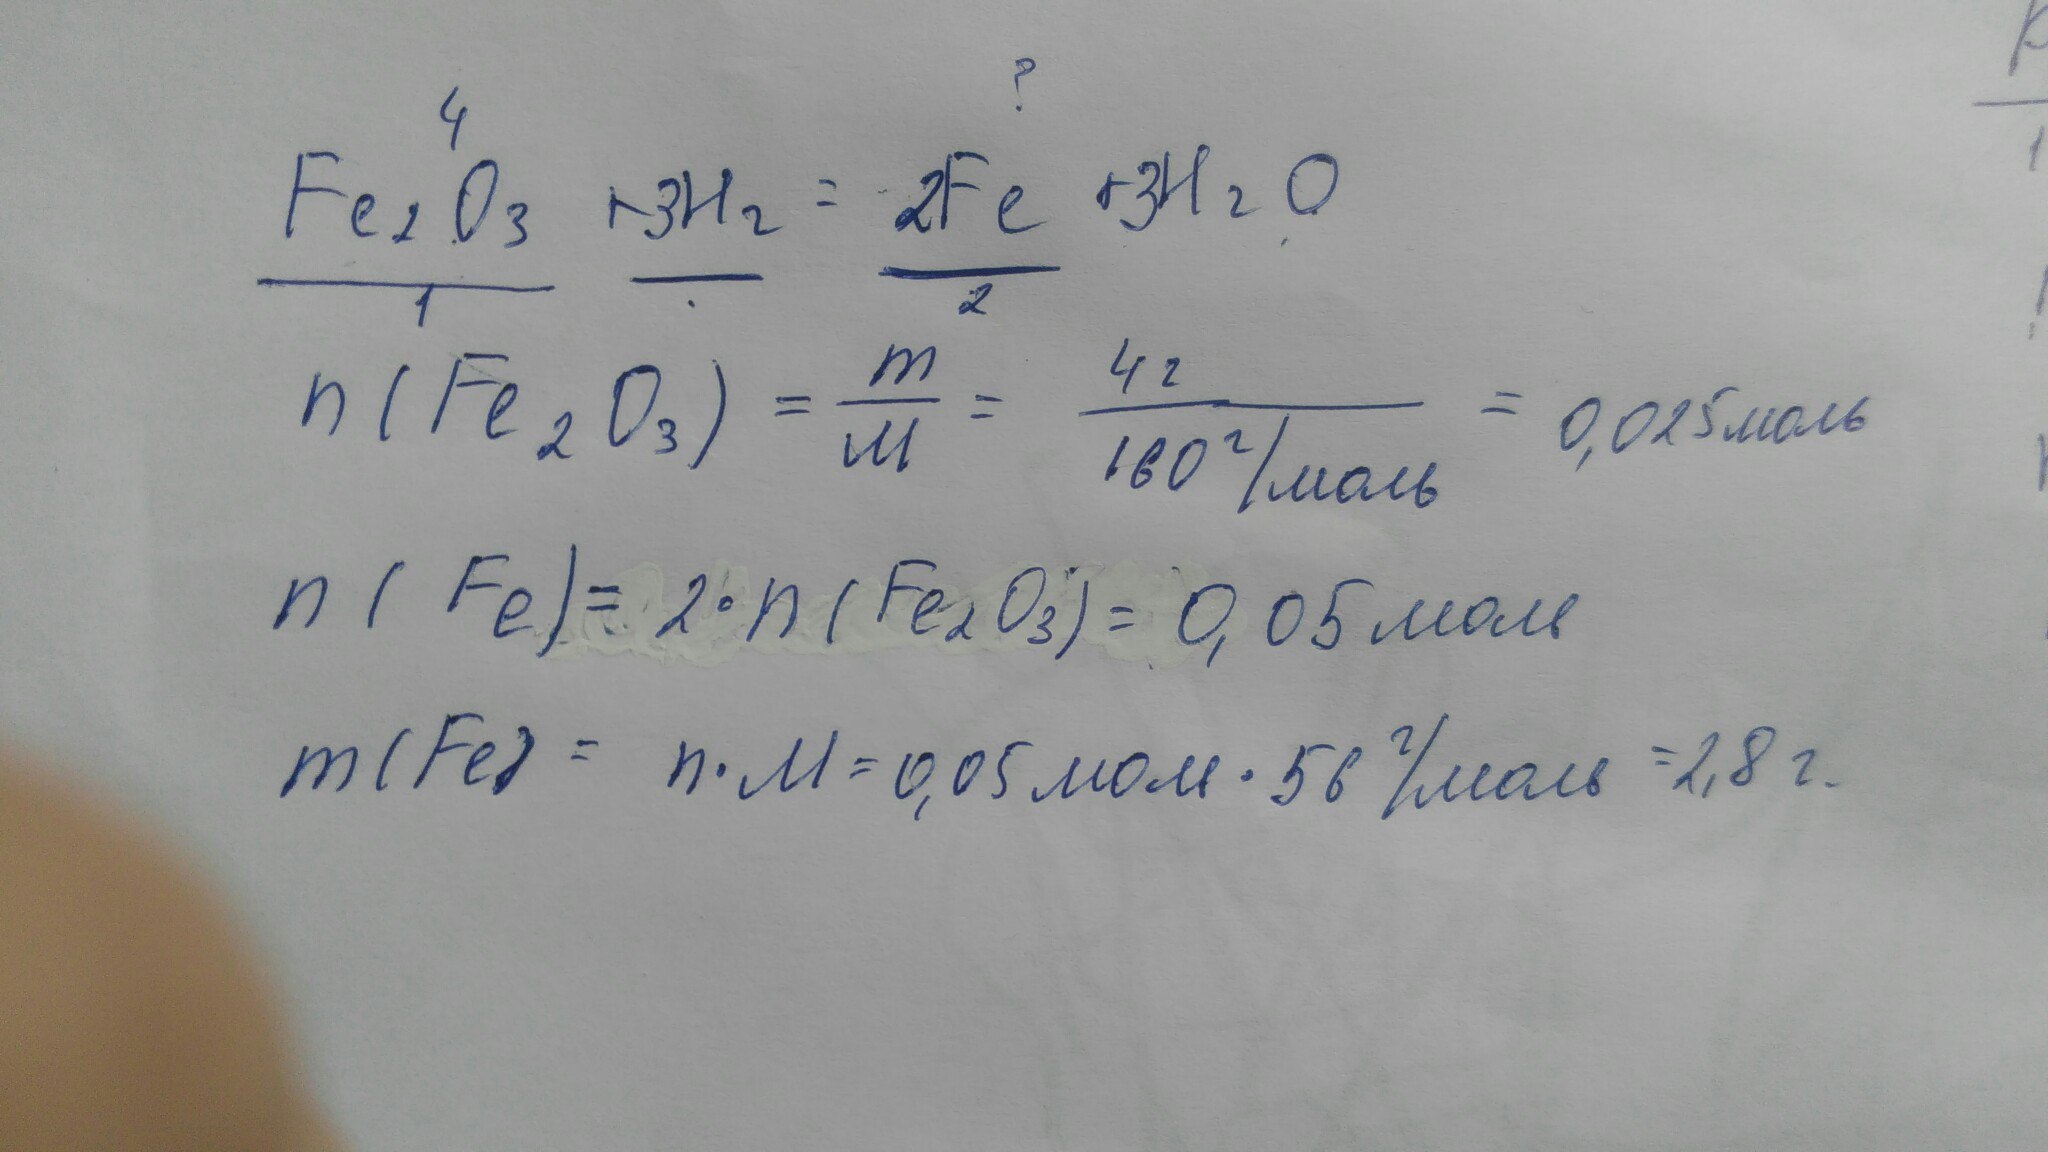 4 ?
Fe₂O₃ +3H₂ = 2Fe +3H₂O
1 2
n(Fe₂O₃) = m/M = 4г/160 г/моль = 0,025 моль
n(Fe) = 2·n(Fe₂O₃) = 0,05 моль
m(Fe) = n·M = 0,05 моль · 56 г/моль = 2,8 г.